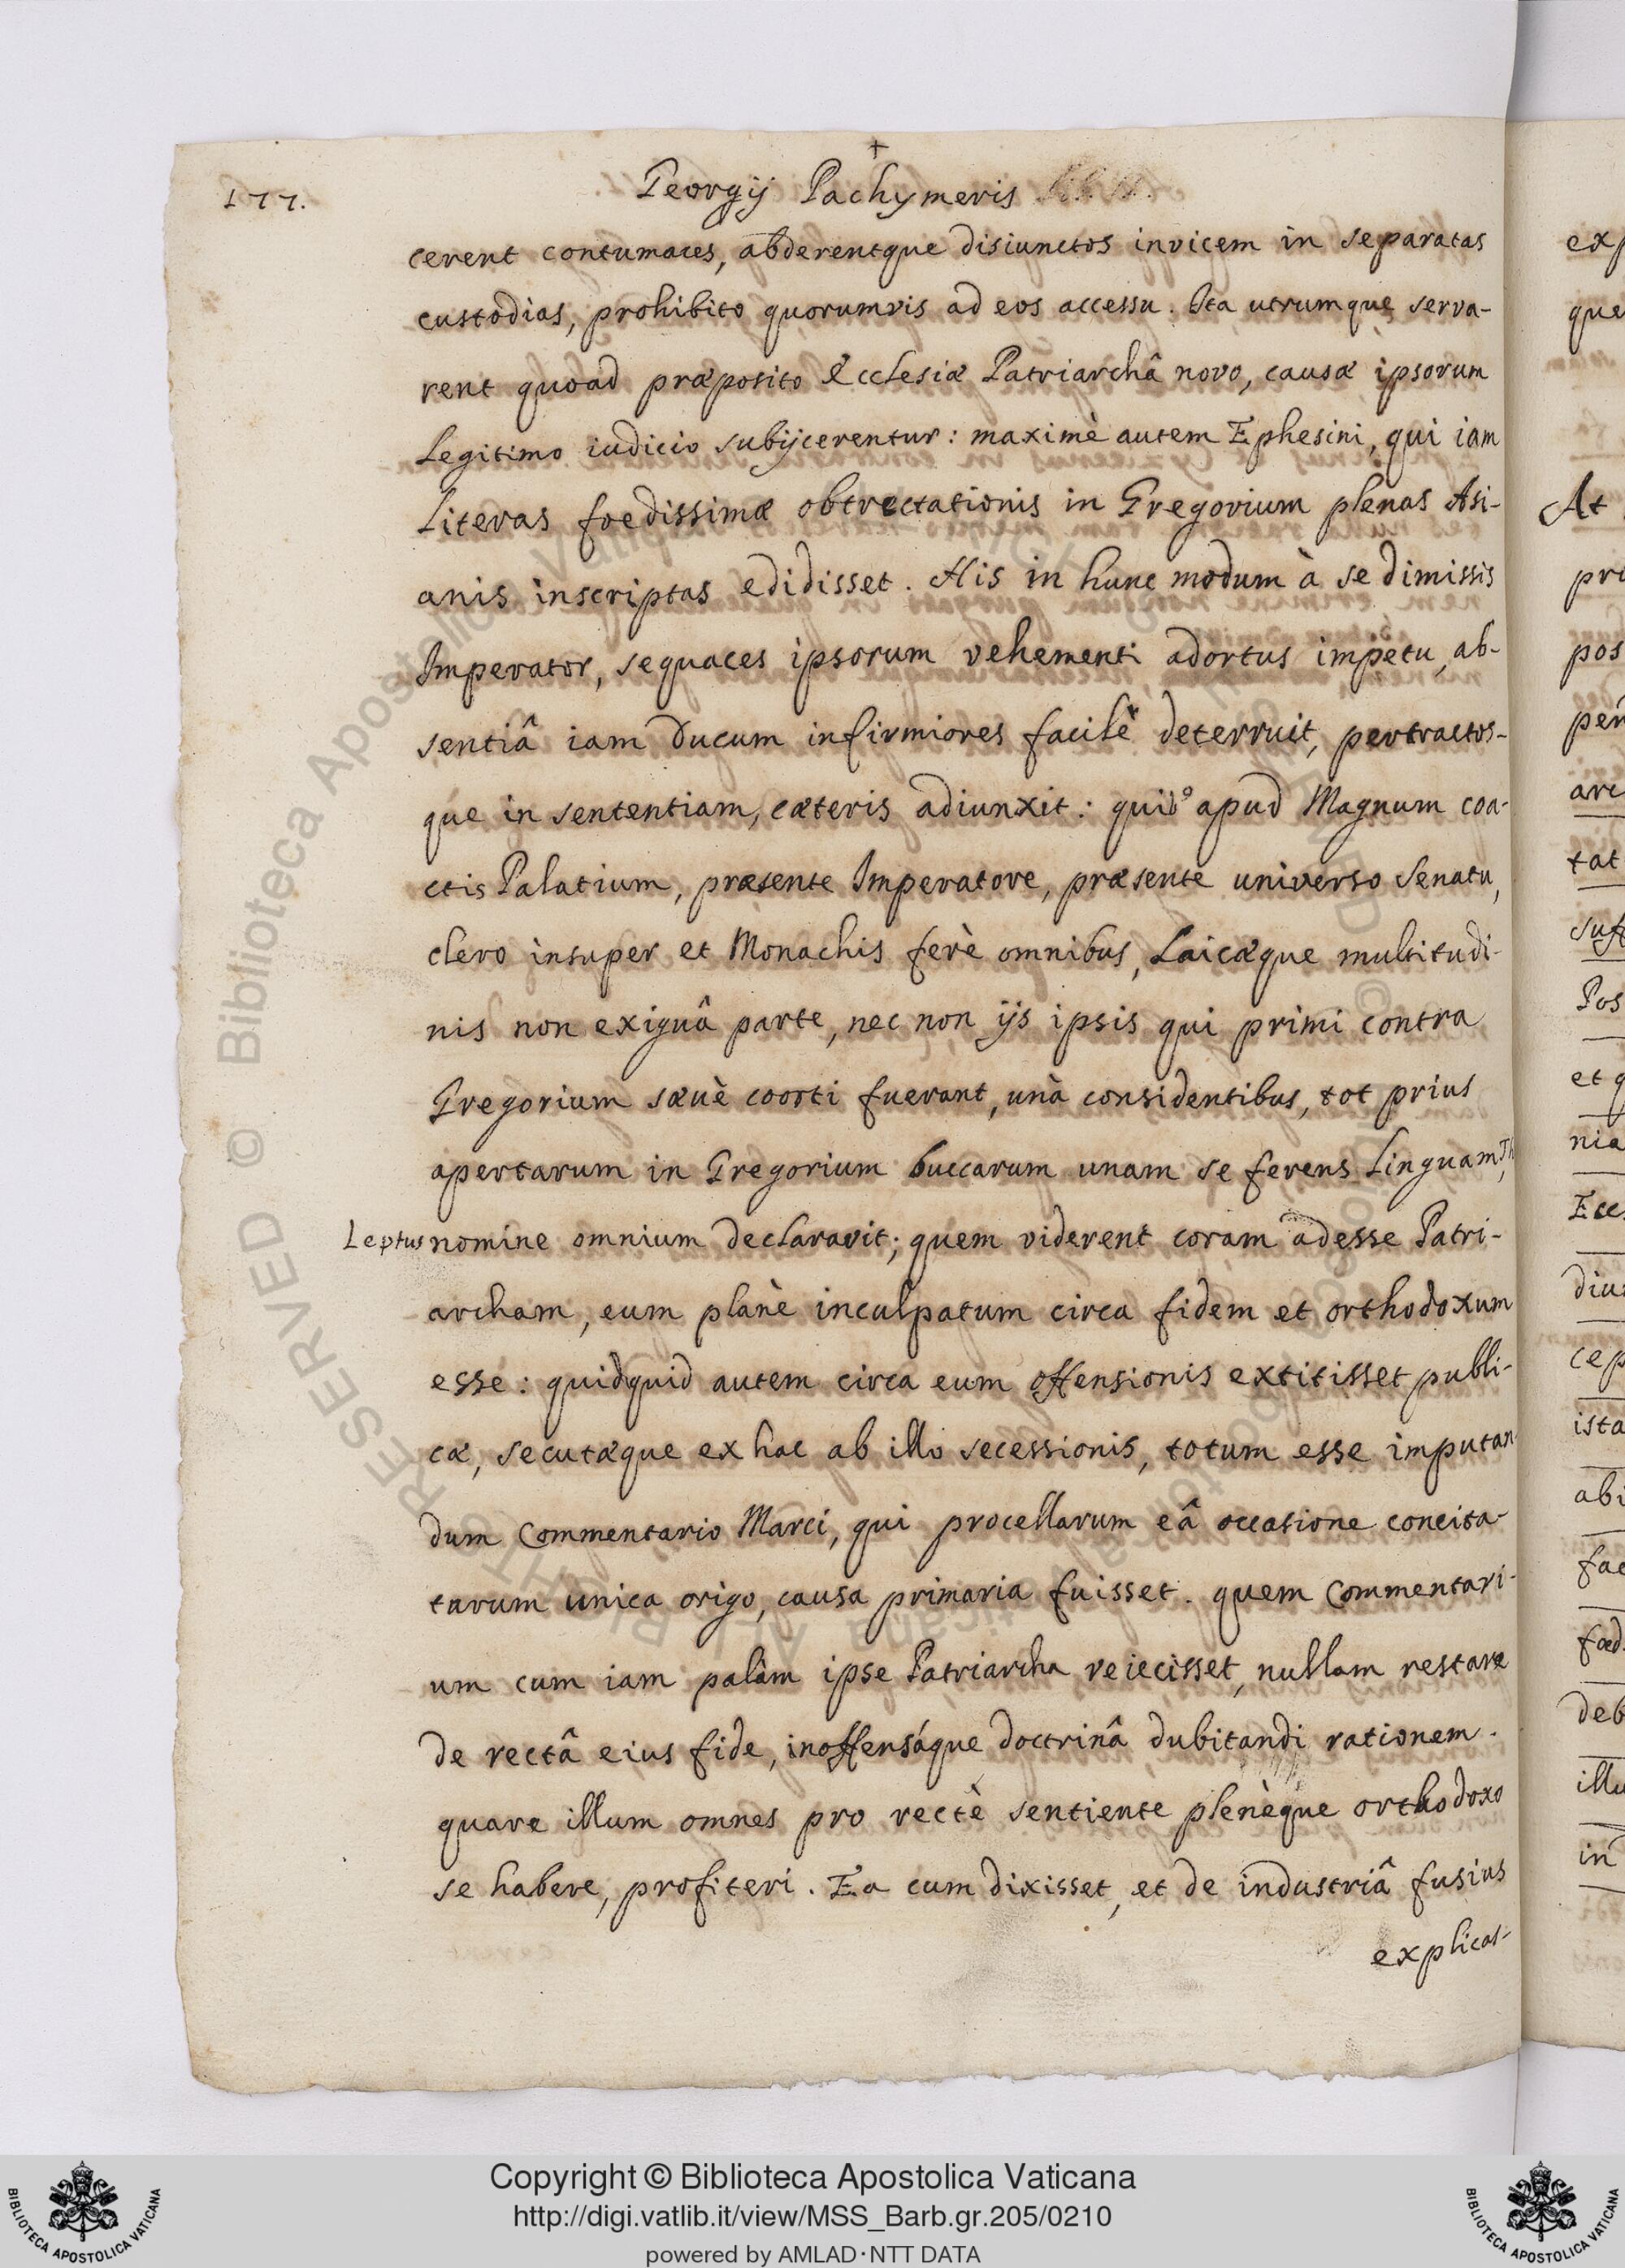 177.
+
Georgij Pachymeris
cerent contumaces, abderentque disiunctos invicem in separatas
custodias, prohibito quorumvis ad eos accessu. Ita utrumque serva-
rent quoad præposito Ecclesiæ Patriarchâ novo, causæ ipsorum
Legitimo iudicio subijcerentur: maximè autem Ephesini, qui iam
Literas foedissimæ obtrectationis in Gregorium plenas Asi-
anis inscriptas edidisset. His in hunc modum à se dimissis
Imperator, sequaces ipsorum vehementi adortus impetu, ab-
sentiâ iam Ducum infirmiores facilè deterruit, pertractos-
que in sententiam, cæteris adiunxit: quib9 apud Magnum coa-
ctis Palatium, præsente Imperatore, præsente universo Senatu,
clero insuper et Monachis ferè omnibus, Laicæque multitudi-
nis non exiguâ parte, nec non ijs ipsis qui primi contra
Gregorium sæuè coorti fuerant, unà considentibus, tot prius
apertarum in Gregorium buccarum unam se ferens Linguam,
Leptus nomine omnium declaravit; quem viderent coram adesse Patri-
archam, eum planè inculpatum circa fidem et orthodoxum
esse: quidquid autem circa eum offensionis extitisset publi-
cæ, secutæque ex hac ab illo secessionis, totum esse imputan-
dum Commentario Marci, qui procellarum eâ occasione concita-
tarum unica origo, causa primaria fuisset. quem Commentari-
um cum iam palàm ipse Patriarcha reiecisset, nullam restare
de rectâ eius fide, inoffensáque doctrinâ dubitandi rationem.
quare illum omnes pro rectè sentiente plenèque orthodoxo
se habere, profiteri. Ea cum dixisset, et de industriâ fusius
explicas-
exp
que
At
pri
pos
arc
tat
suf
Pos
et q
nia
Ecc
diu
cep
ista
abi
fac
fæd
deb
illu
in
© Biblioteca Apostolica Vaticana
RESERVED
Copyright © Biblioteca Apostolica Vaticana
http://digi.vatlib.it/view/MSS_Barb.gr.205/0210
powered by AMLAD·NTT DATA
BIBLIOTECA APOSTOLICA VATICANA
BIBLIOTECA APOSTOLICA VATICANA